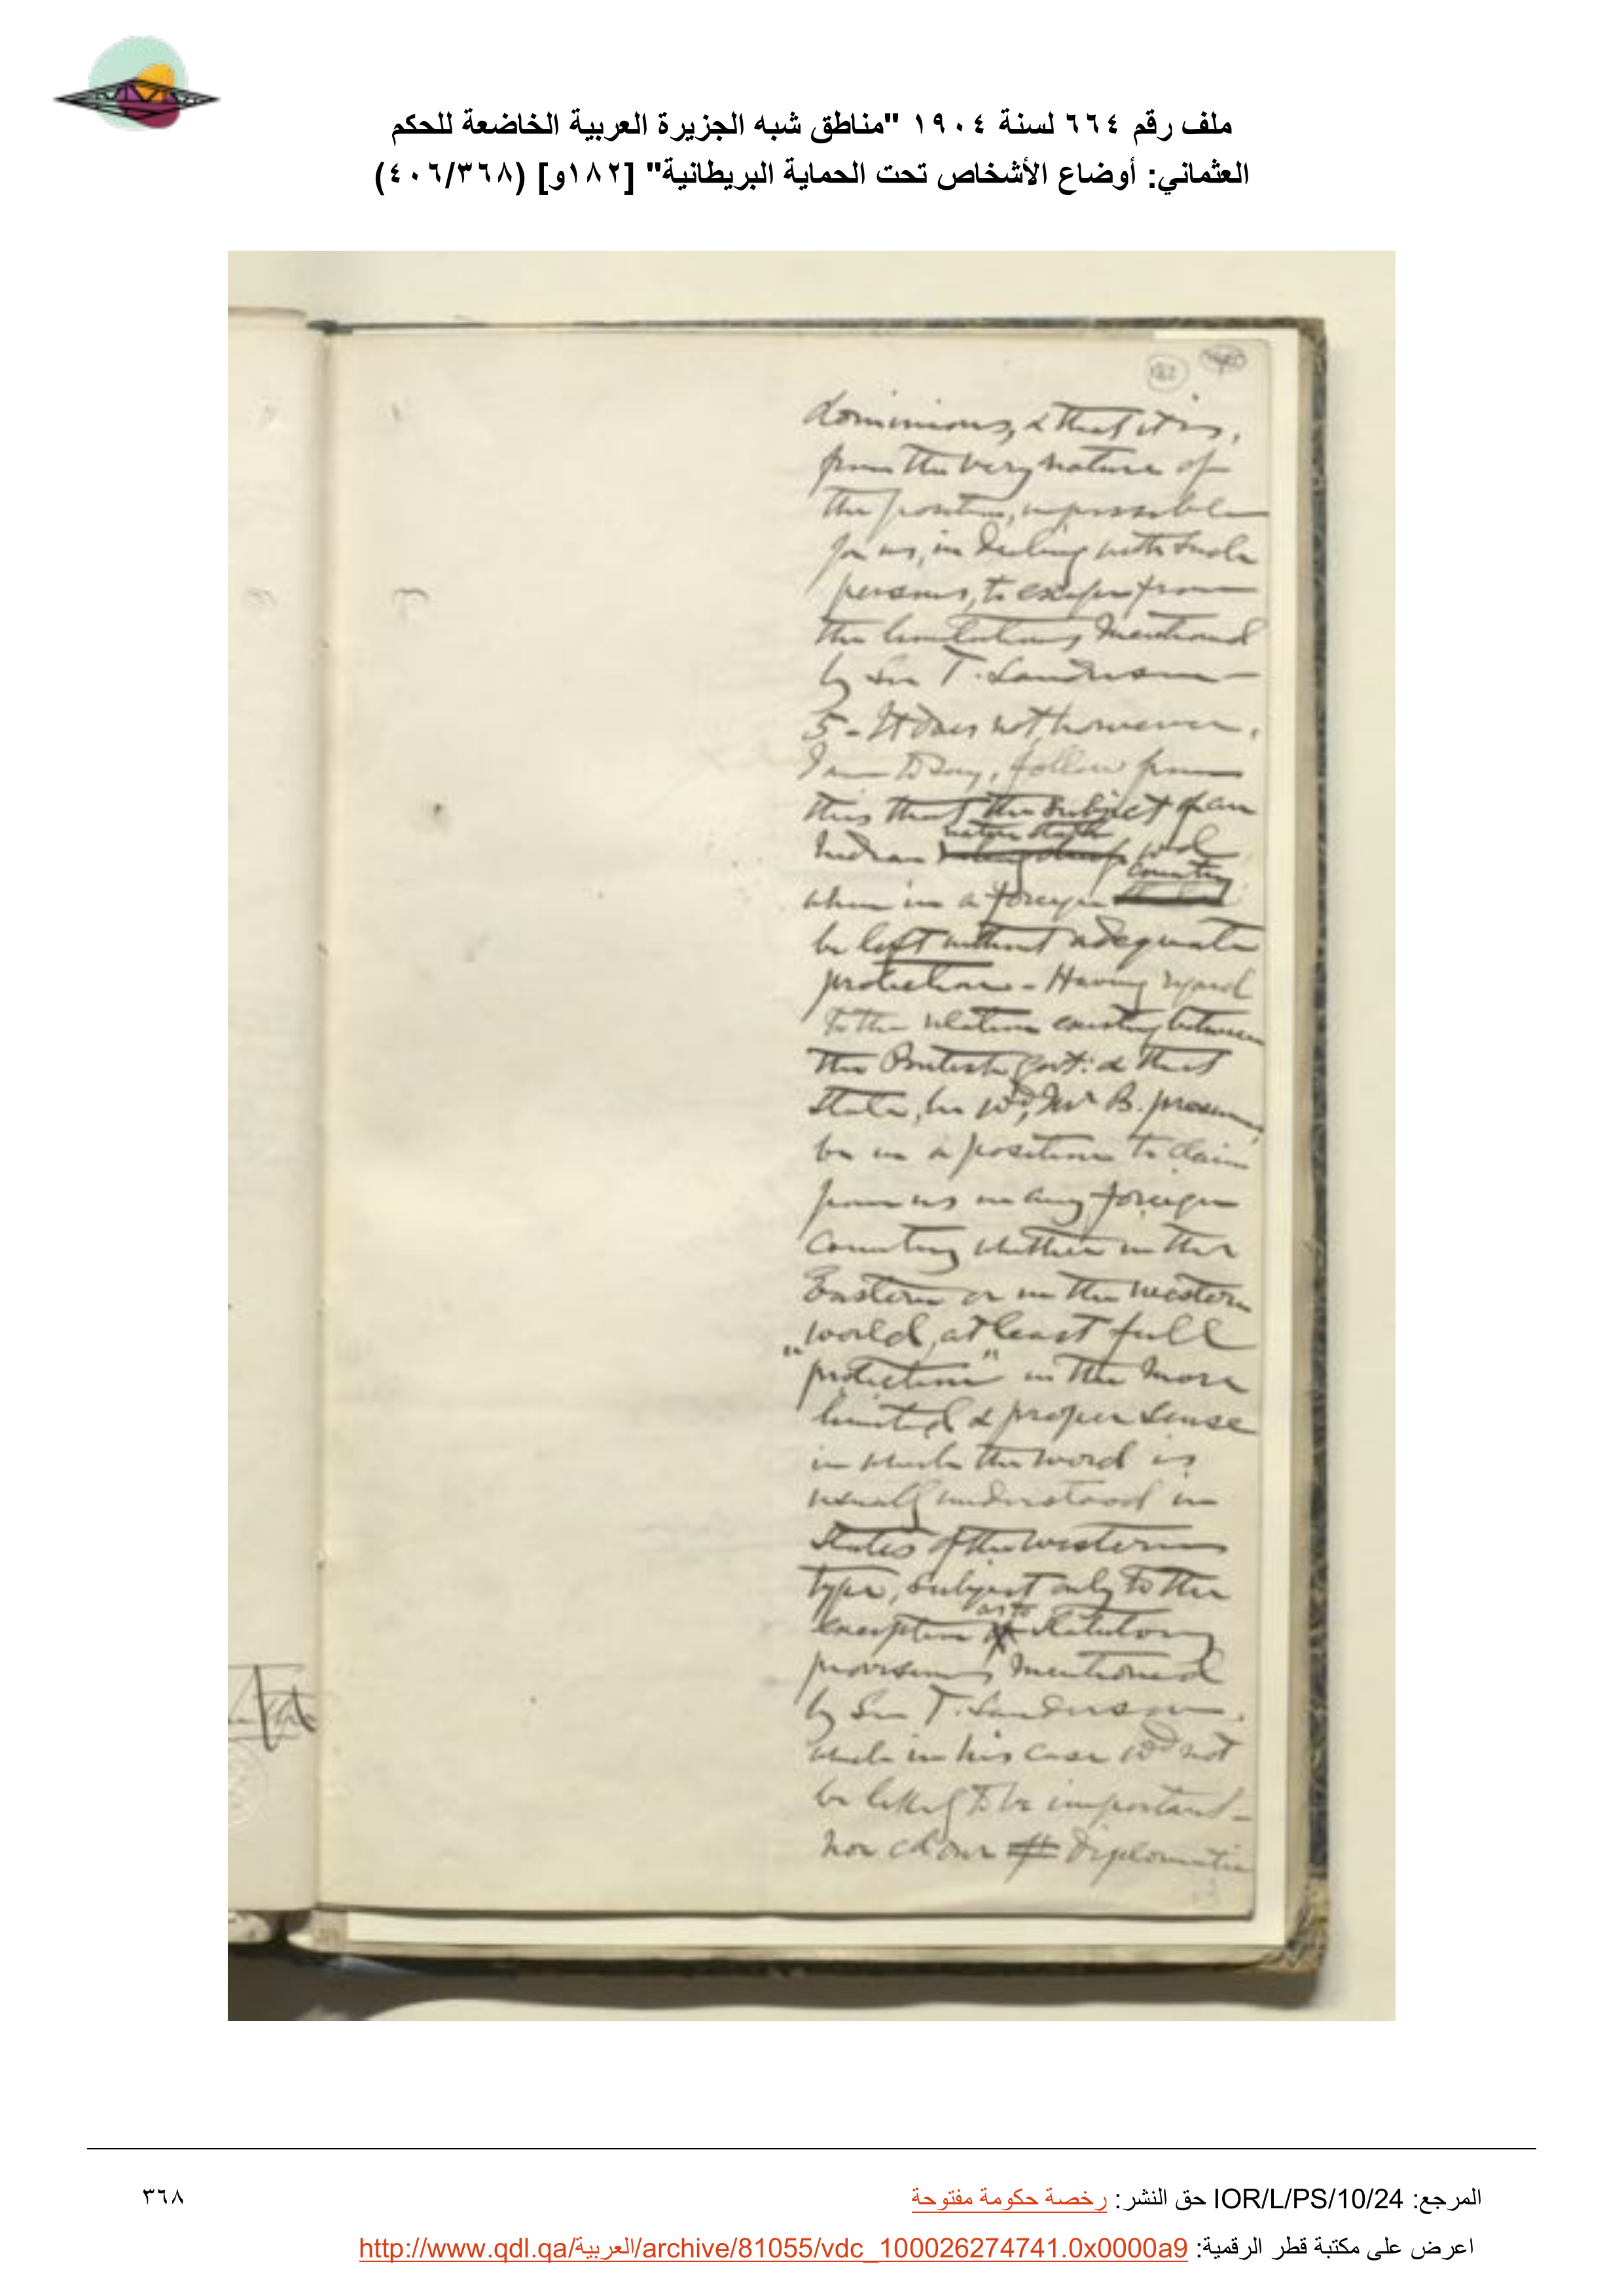 ملف رقم ٦٦٤ لسنة ١٩٠٤ "مناطق شبه الجزيرة العربية الخاضعة للحكم
العثماني: أوضاع الأشخاص تحت الحماية البريطانية" [١٨٢و] (٤٠٦/٣٦٨)
182
dominions, & that it is,
from the very nature of
the position, impossible
for us, in dealing with such
persons, to escape from
the limitations mentioned
by Sir T. Sanderson
5 - It does not, however,
I am to say, follow from
this that the subject of an
Indian native state wd
when in a foreign country
be left without adequate
protection - Having regard
to the relations existing between
the British Govt: & that
State, he wd, Mr B. presumes,
be in a position to claim
from us in any foreign
country whether in the
Eastern or in the western
world, at least full
"protection" in the more
limited & proper sense
in which the word is
usually understood in
States of the western
type, subject only to the
exception as to statutory
provisions mentioned
by Sir T. Sanderson,
which in his case wd not
be likely to be important -
nor cd our diplomatic
المرجع: IOR/L/PS/10/24 حق النشر: رخصة حكومة مفتوحة
٣٦٨
اعرض على مكتبة قطر الرقمية: http://www.qdl.qa/العربية/archive/81055/vdc_100026274741.0x0000a9